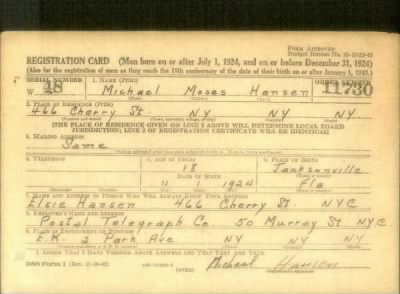 FORM APPROVED
REGISTRATION CARD (Men born on or after July 1, 1924, and on or before December 31, 1924)
(Also for the registration of men as they reach the 18th anniversary of the date of their birth on or after January 1, 1943.)
SERIAL NUMBER
W 48
1. NAME (Print)
Michael Moses Hansen
ORDER NUMBER
11730
2. PLACE OF RESIDENCE (Print)
466 Cherry St NY NY
[THE PLACE OF RESIDENCE GIVEN ON LINE 2 ABOVE WILL DETERMINE LOCAL BOARD
JURISDICTION; LINE 2 OF REGISTRATION CERTIFICATE WILL BE IDENTICAL]
3. MAILING ADDRESS
Same
4. TELEPHONE
5. AGE IN YEARS
18
DATE OF BIRTH
11 1924
6. PLACE OF BIRTH
Jacksonville
Fla
7. NAME AND ADDRESS OF PERSON WHO WILL ALWAYS KNOW YOUR ADDRESS
Elsie Hansen 466 Cherry St. NYC
8. EMPLOYER'S NAME AND ADDRESS
Postal Telegraph Co 50 Murray St. N.Y.C.
9. PLACE OF EMPLOYMENT OR BUSINESS
2 Park Ave NY NY
I AFFIRM THAT I HAVE VERIFIED ABOVE ANSWERS AND THAT THEY ARE TRUE.
DSS Form 1
Michael Hansen